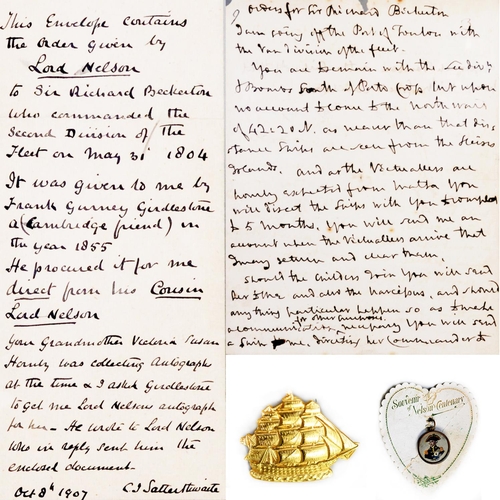 This Envelope contains
the Order given by
Lord Nelson
to Sir Richard Beckerton
who commanded the
Second Division of the
Fleet on May 31 1804
It was given to me by
Frank Gurney Girdlestone
a (Cambridge friend) in
the year 1855
He procured it for me
direct from his Cousin
Lord Nelson
Your Grandmother Victoria Susan
Hornby was collecting Autographs
at the time & I asked Girdlestone
to get me Lord Nelsons autograph
for her - He wrote to Lord Nelson
who in reply sent him the
enclosed document.
Oct 8th 1907 C J Satterthwaite
orders for Sir Richard Bickerton
I am going off the Port of Toulon with
the Van division of the fleet.
You are to remain with the Lee div
South of Porto but upon
no account to come to the northward
of 42:20 N. as nearer than that dis-
tance Ships are seen from the
Islands. and as the Victuallers are
hourly expected from Malta You
will direct the Ships with You to complete
to 5 months. You will send me an
account when the Victuallers arrive that
I may return and clear them.
Should the Childers Join You will send
her and also the Narcissus, and should
any thing particular happen so as to make
a communication necessary You will send
for other Cruizers
a Ship to me, directing her Commander to
Souvenir
of
Nelson Centenary